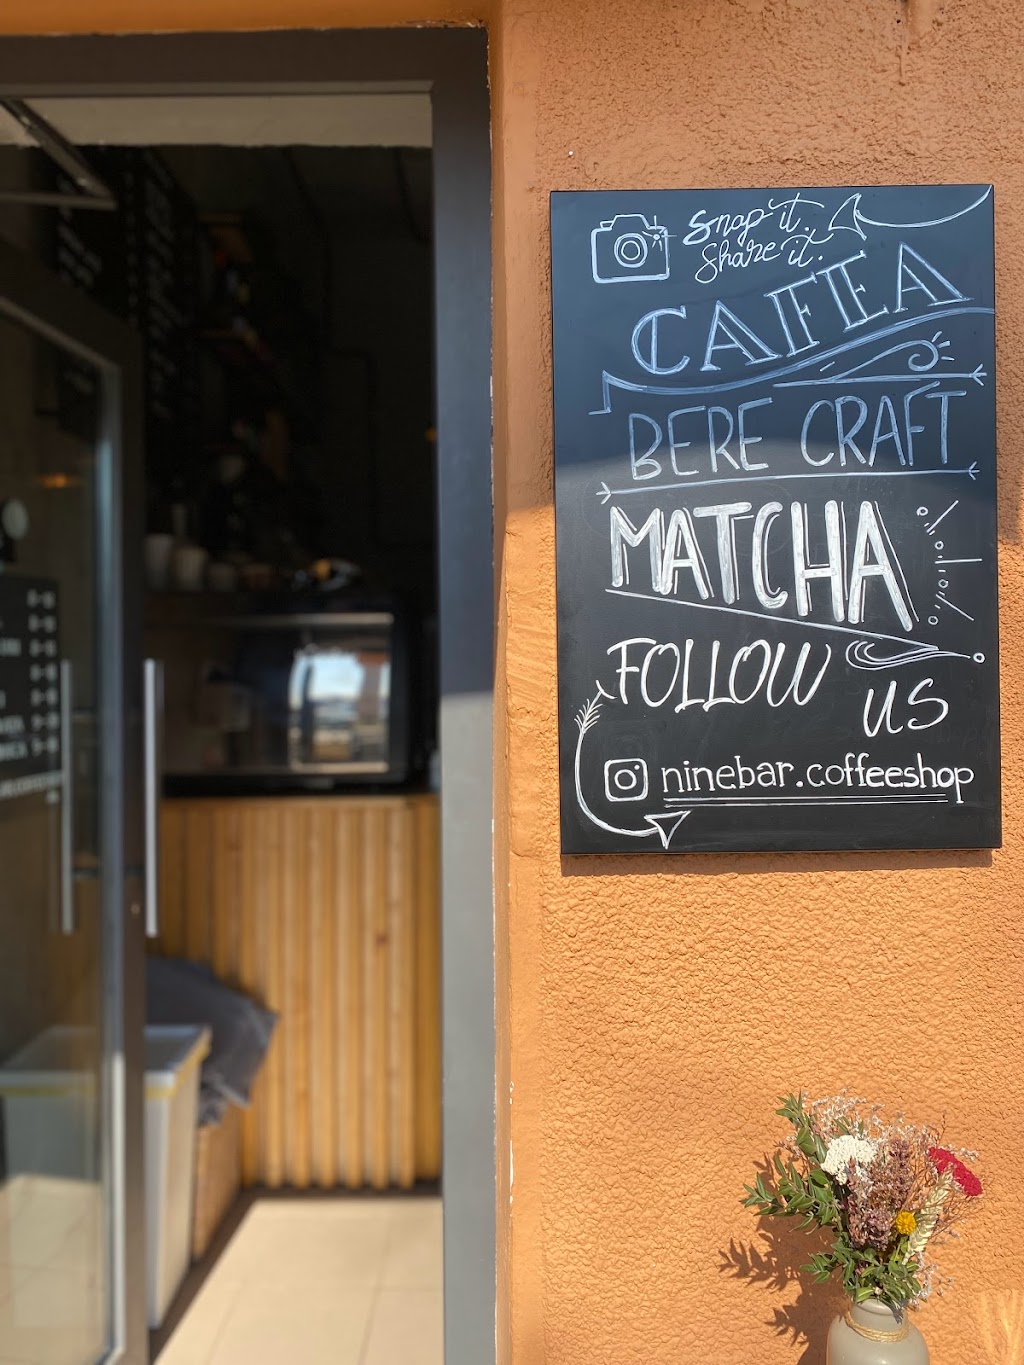 Snap it.
Share it.
CAFEA
BERE CRAFT
MATCHA
FOLLOW
US
ninebar.coffeeshop